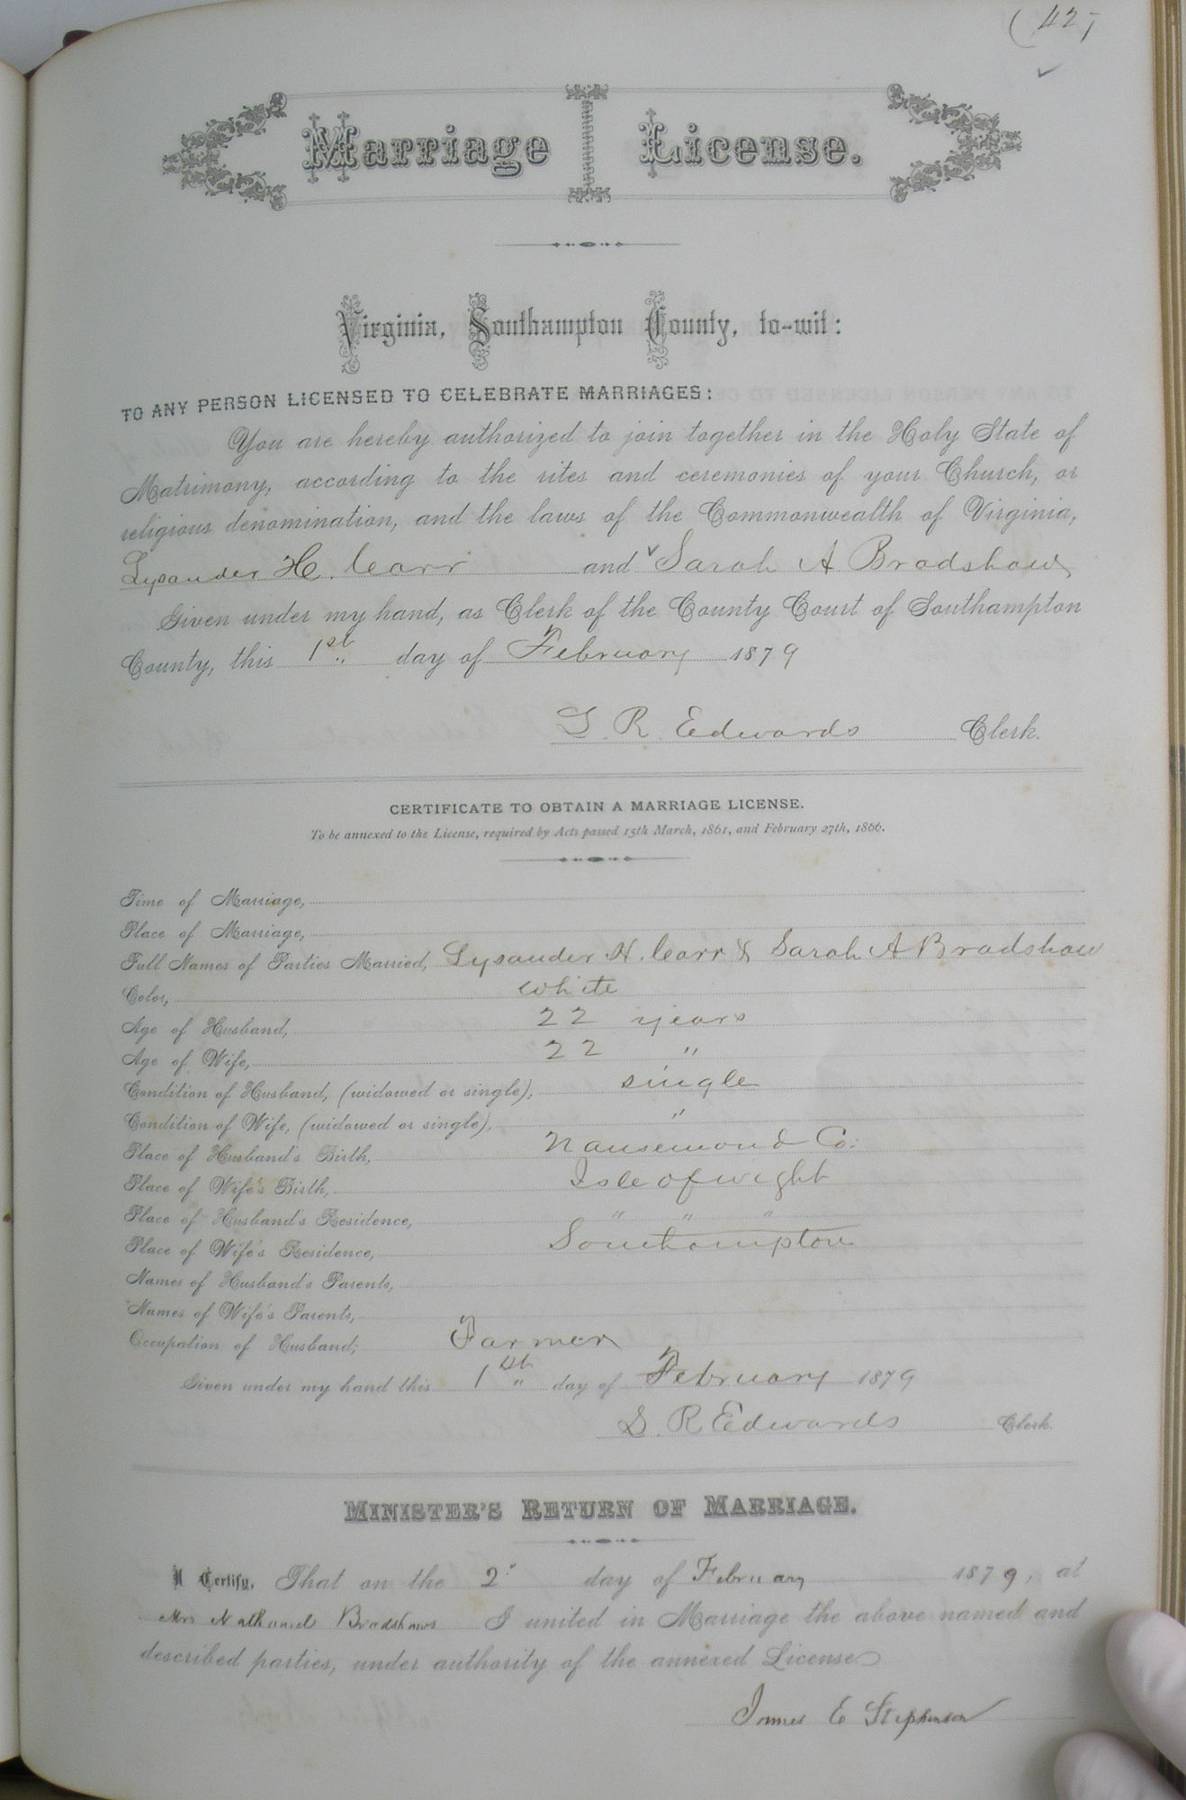 ( 42 )
Marriage License.
Virginia, Southampton County, to-wit:
TO ANY PERSON LICENSED TO CELEBRATE MARRIAGES:
You are hereby authorized to join together in the Holy State of
Matrimony, according to the rites and ceremonies of your Church, or
religious denomination, and the laws of the Commonwealth of Virginia,
Lysander H. Carr and Sarah A Bradshaw
Given under my hand, as Clerk of the County Court of Southampton
County, this 1st day of February 1879
L. R. Edwards Clerk.
CERTIFICATE TO OBTAIN A MARRIAGE LICENSE.
To be annexed to the License, required by Acts passed 15th March, 1861, and February 27th, 1866.
Time of Marriage,
Place of Marriage,
Full Names of Parties Married, Lysander H. Carr & Sarah A Bradshaw
Color, white
Age of Husband, 22 years
Age of Wife, 22 "
Condition of Husband, (widowed or single), single
Condition of Wife, (widowed or single), "
Place of Husband's Birth, Nansemond Co:
Place of Wife's Birth, Isle of wight
Place of Husband's Residence, " " "
Place of Wife's Residence, Southampton
Names of Husband's Parents,
Names of Wife's Parents,
Occupation of Husband; Farmer
Given under my hand this 1st day of February 1879
L. R. Edwards Clerk.
MINISTER'S RETURN OF MARRIAGE.
I Certify, That on the 2 day of February 1879, at
Mrs Nathaniel Bradshaws I united in Marriage the above named and
described parties, under authority of the annexed License
James E Stephenson